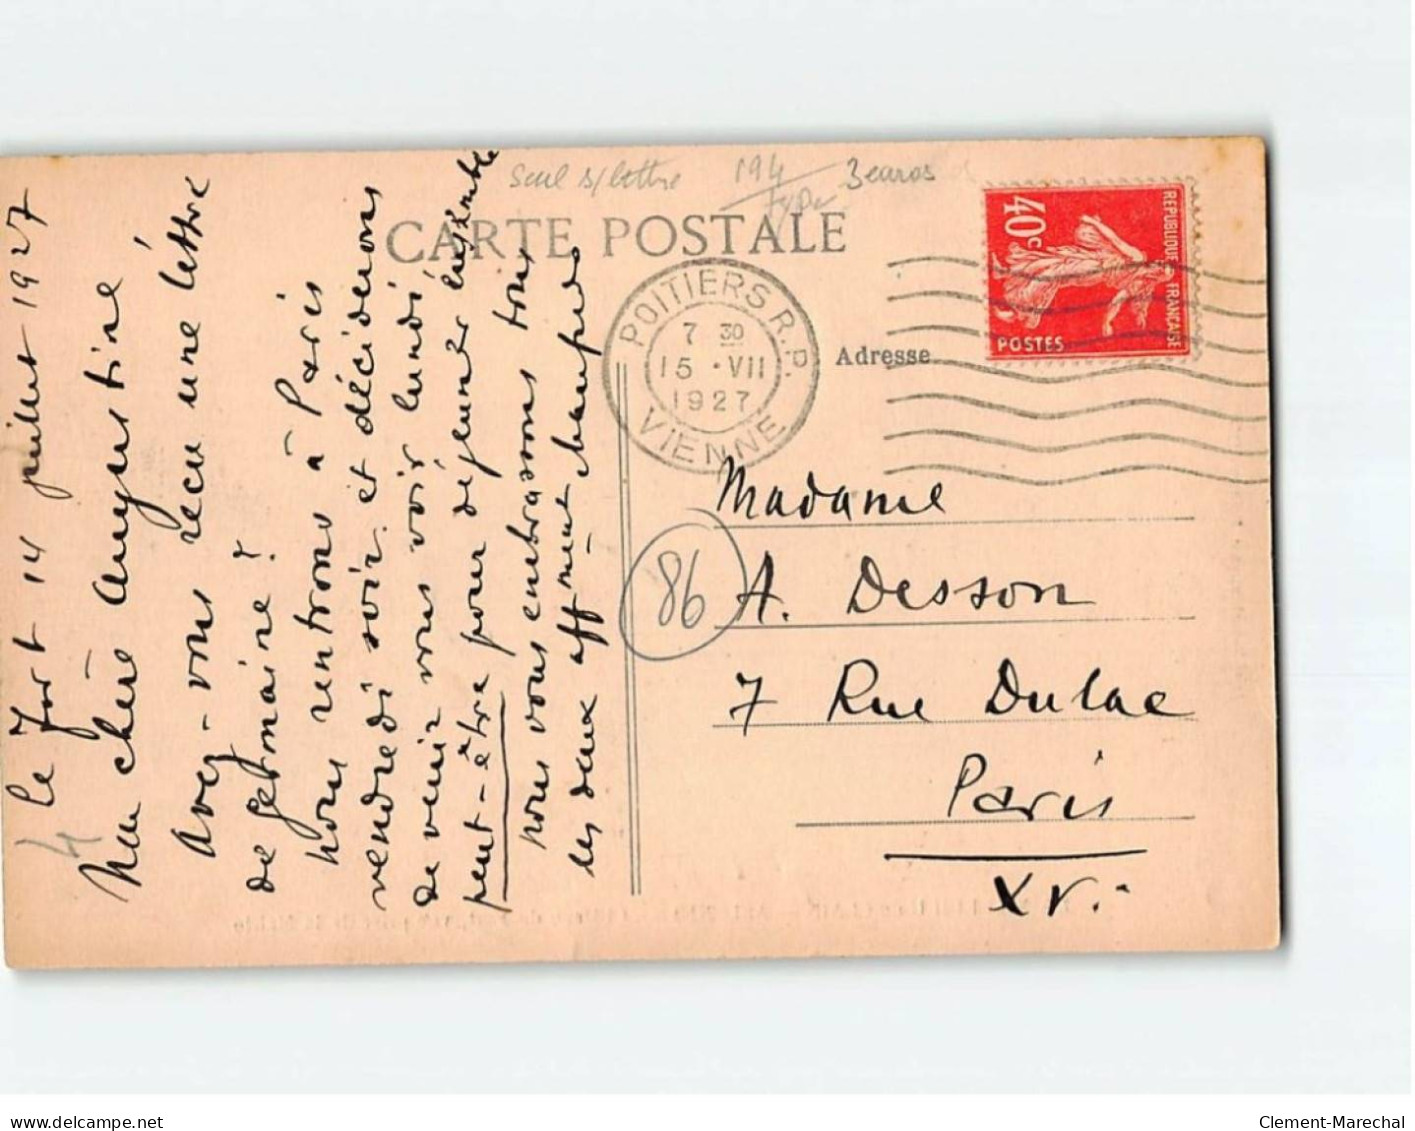 Seul s/lettre 194 3 euros
type
CARTE POSTALE
REPUBLIQUE FRANÇAISE
40c
POSTES
POITIERS R.P.
7 30
15 · VII
1927
VIENNE
Adresse
Madame
A. Desson
7 Rue Dulac
Paris
XV.
86
4
Le Fort 14 juillet 1927
Ma chère Augustine
Avez-vous recu une lettre
de germaine ?
nous rentrons à Paris
vendredi soir. et déciderons
de venir vous voir lundi
peut-être pour déjeuner ensemble
nous vous embrassons tous
les deux affment
delcampe.net
Clement-Marechal